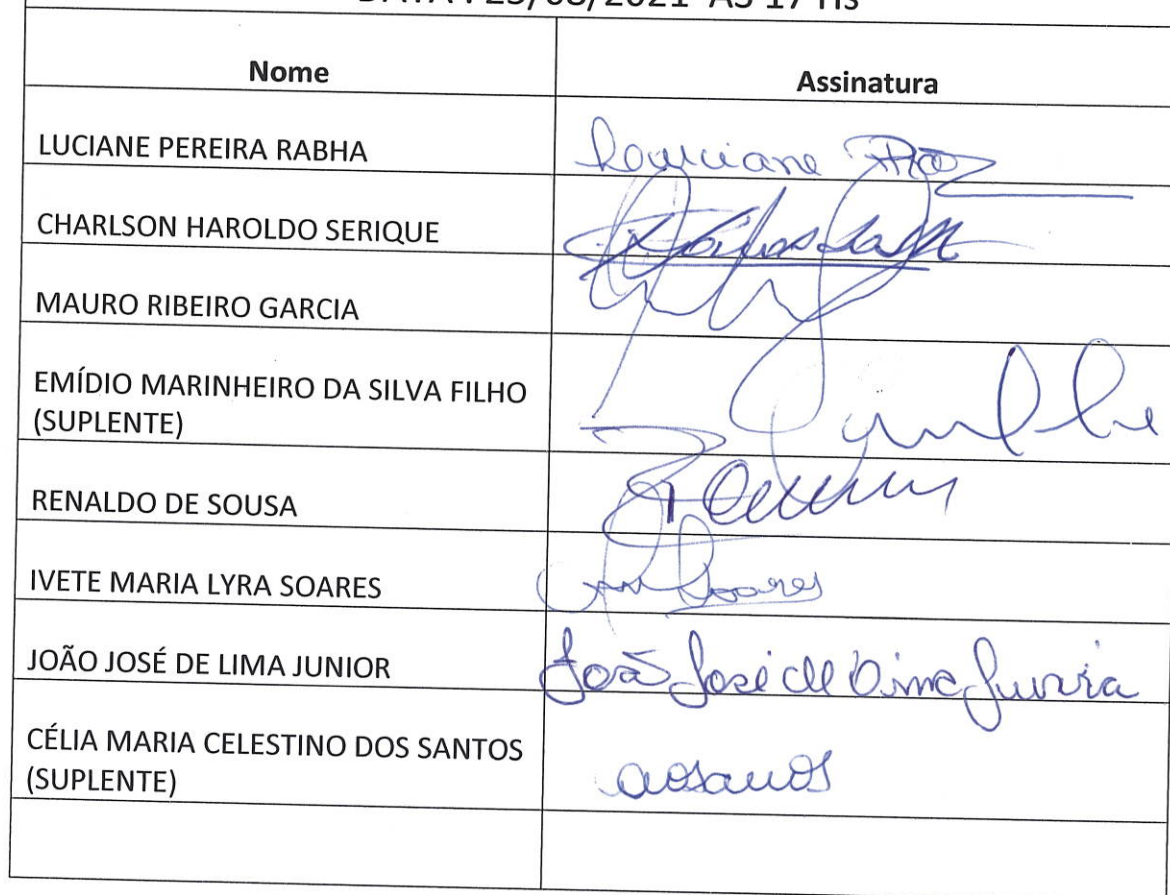 DATA : 25/08/2021 AS 17 Hs
Nome Assinatura
LUCIANE PEREIRA RABHA Louciane
CHARLSON HAROLDO SERIQUE
MAURO RIBEIRO GARCIA
EMÍDIO MARINHEIRO DA SILVA FILHO
(SUPLENTE)
RENALDO DE SOUSA
IVETE MARIA LYRA SOARES Soares
JOÃO JOSÉ DE LIMA JUNIOR João José de Lima Junior
CÉLIA MARIA CELESTINO DOS SANTOS
(SUPLENTE)